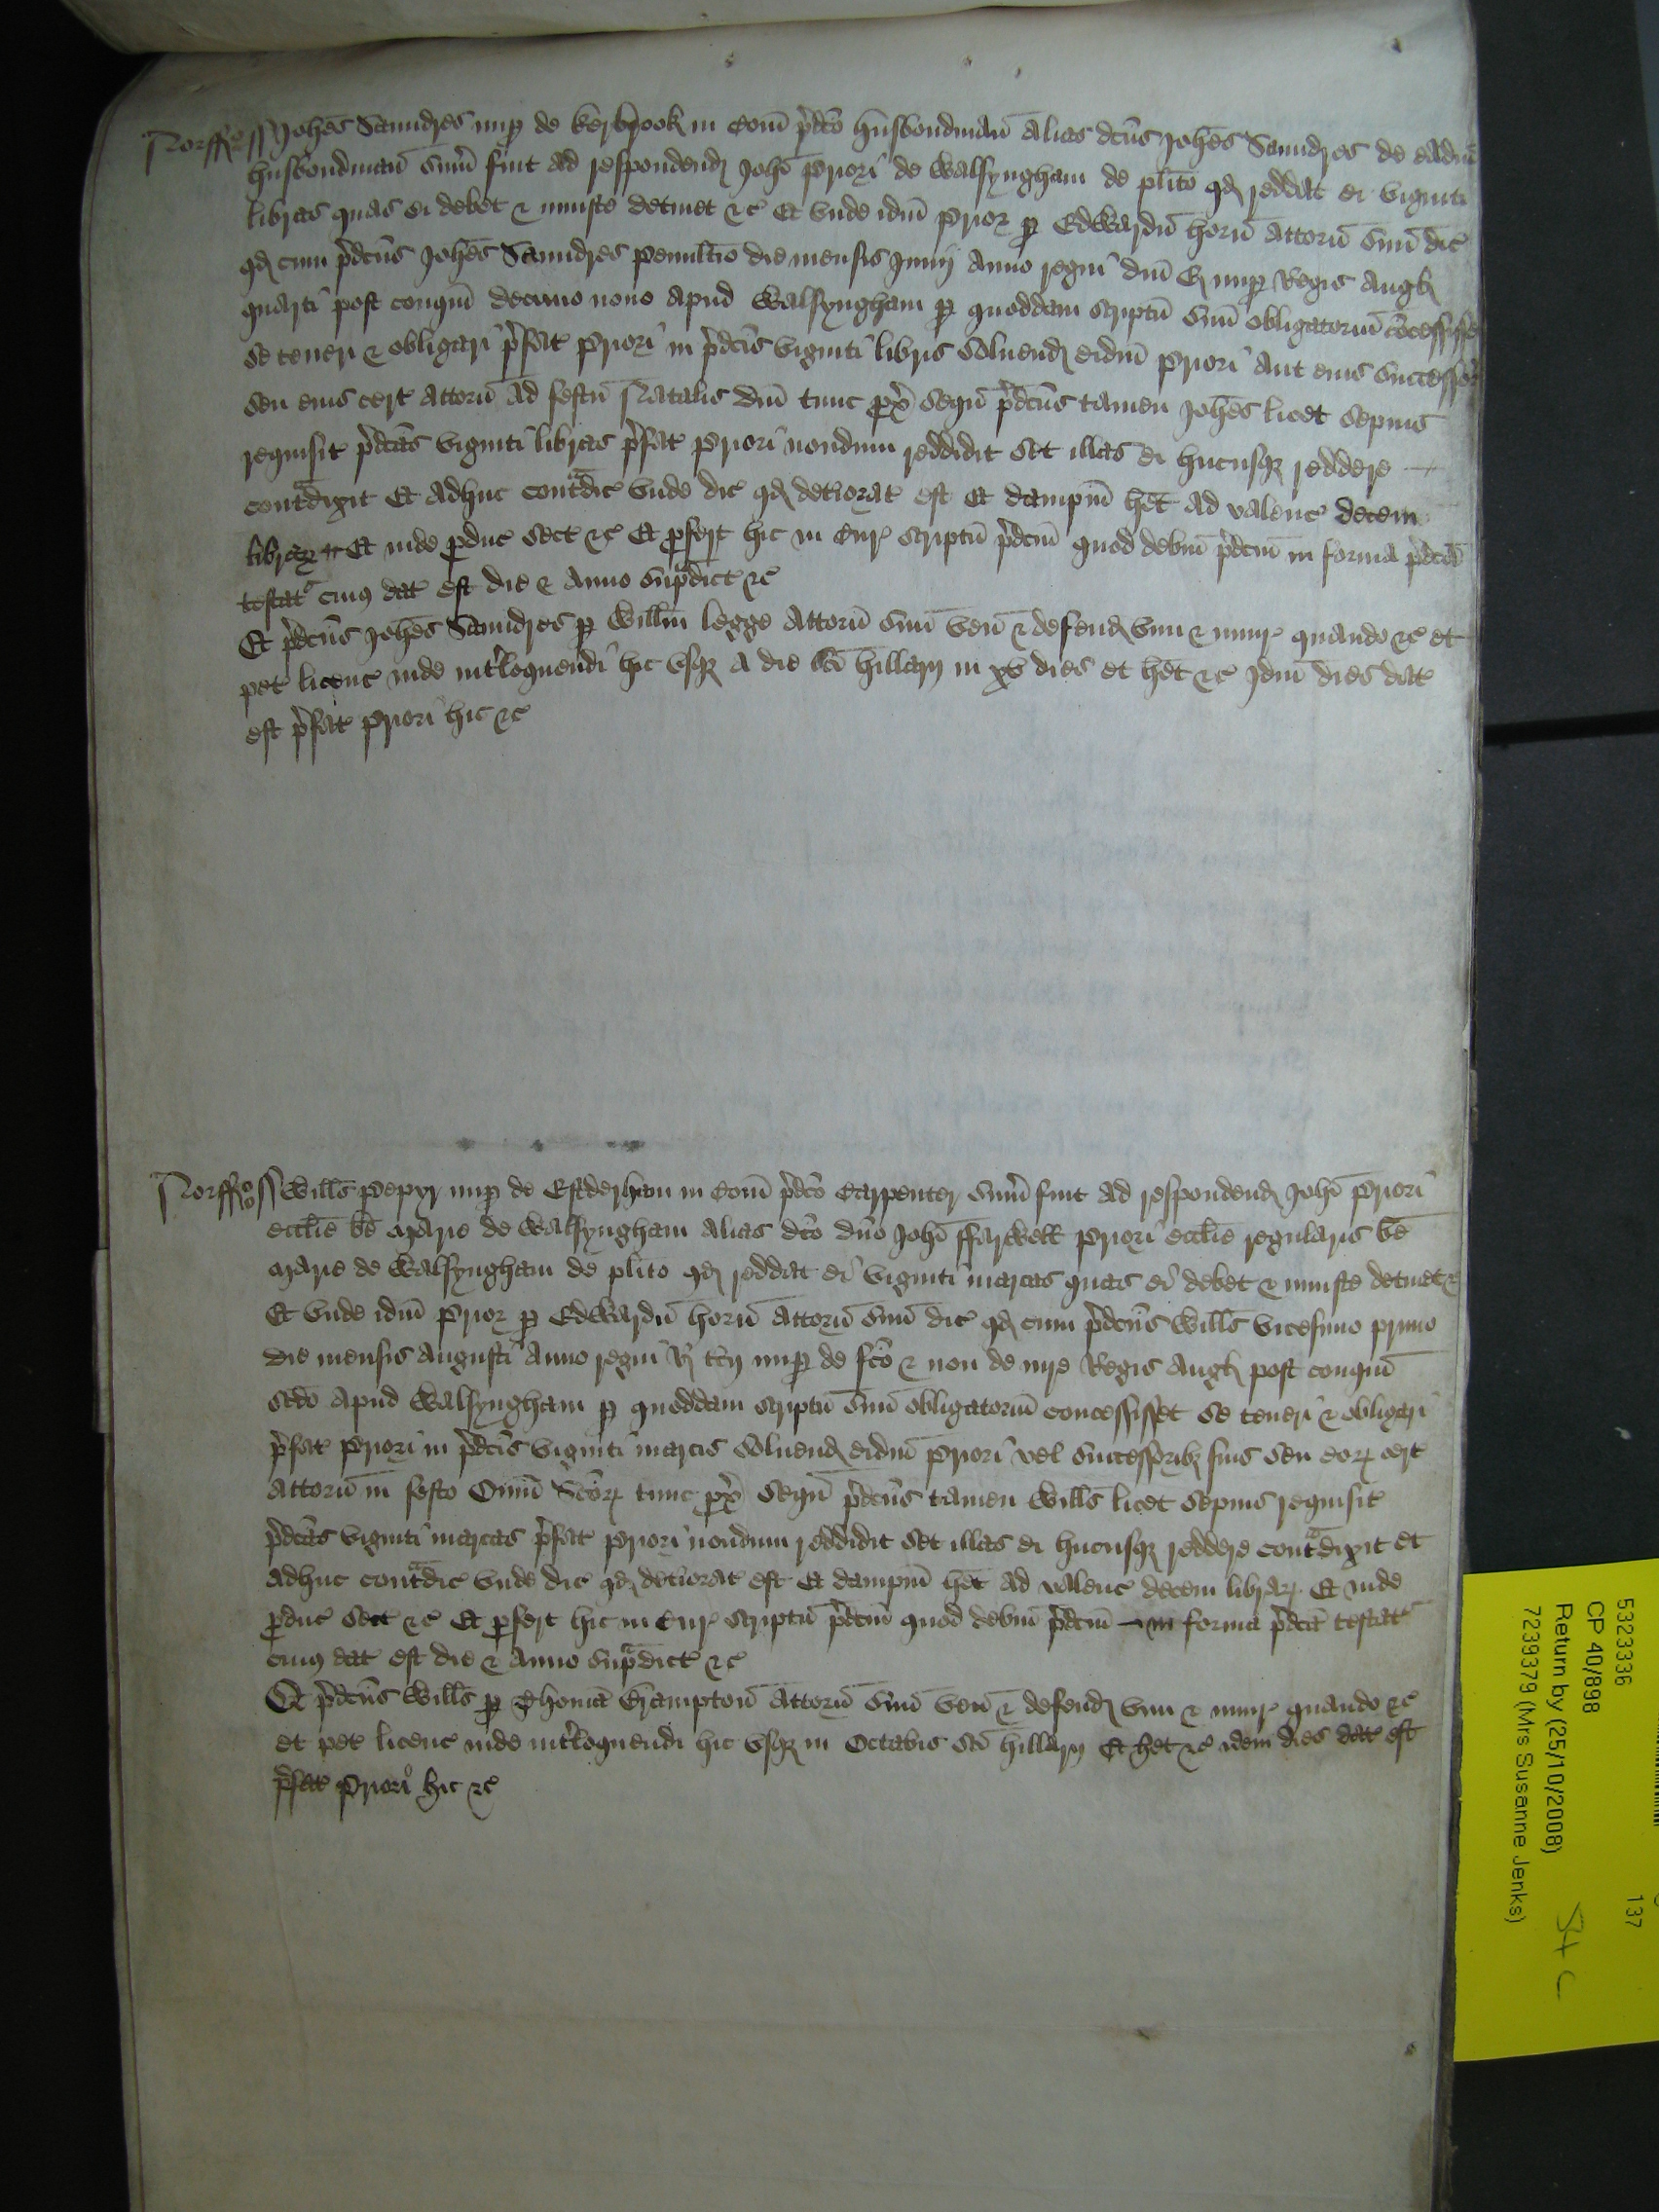 Norff ss Joħes Saundres nup de Kerbrook in Com p̄dc̄o husbondman alias dcūs Joħes Saundres de eadm̄
husbondman sum̄ fuit ad respondend Joħi Priori de Walsyngham de plīto qd reddat ei viginti
libras quas ei debet & iniuste detinet &c Et vnde idm̄ Prior p Edwardū horn̄ attorn̄ suū dic̄
qd cum p̄dcūs Joħes Saundres penultīo die mensis Junij anno regni dn̄i E nup Regis Angl
quarti post conqm̄ decimo nono apud Walsyngham p quoddam scriptū suū obligatoriū cōcessisset
se teneri & obligari p̄fat Priori in p̄dcīs viginti libris soluend eidm̄ Priori aut eius successor
seu eius cert attorn̄ ad festū Natalis dn̄i tunc px̄ seqū p̄dcūs tamen Joħes licet sepius
requisit p̄dcās viginti libras p̄fat Priori nondum reddidit set illas ei hucusq reddere
contadixit Et adhuc contadic̄ vnde dic̄ qd detiorat est Et dampm̄ het ad valenc̄ decem
librar Et inde pduc̄ sect̄ &c Et pfert hic in Cur scriptū p̄dcm̄ quod debm̄ p̄dcm̄ in forma p̄dcā
testat cuius dat est die & anno sup̄dict &c
Et p̄dcūs Joħes Saundres p Willm̄ Legge attorn̄ suū ven̄ & defend vim & iniur quando &c et
pet licenc̄ inde intloquendi hic vsq a die scī hillarij in xv dies et het &c Idm̄ dies dat
est p̄fat Priori hic &c
Norff ss Wills Pepyr nup de Estderham in Com p̄dc̄o Carpenter sum̄ fuit ad respondend Joħi Priori
ecclīe bē Marie de Walsyngham alias dc̄o dn̄o Joħi ffarwell Priori ecclīe regularis bē
Marie de Walsyngham de plīto qd reddat ei viginti marcas quas ei debet & iniuste detinet &c
Et vnde idm̄ Prior p Edwardū horn̄ attorn̄ suū dic̄ qd cum p̄dcūs Wills vicesimo primo
die mensis Augusti anno regni R tcij nup de fc̄o & non de iure Regis Angl post conqm̄
scdō apud Walsyngham p quoddam scriptū suū obligatoriū concessisset se teneri & obligari
p̄fat Priori in p̄dcīs viginti marcis soluend eidm̄ Priori vel successorib suis seu eor cert
attorn̄ in festo Om̄i Scōr tunc px̄ seqū p̄dcūs tamen Wills licet sepius requisit
p̄dcās viginti marcas p̄fat Priori nondum reddidit set illas ei hucusq reddere contadixit et
adhuc contadic̄ vnde dic̄ qd detiorat est Et dampm̄ het ad valenc̄ decem librar Et inde
pduc̄ sect̄ &c Et pfert hic in Cur scriptū p̄dcm̄ quod debm̄ p̄dcm̄ in forma p̄dcā testat
cuius dat est die & anno sup̄dict &c
Et p̄dcūs Wills p Thomā Crampton attorn̄ suū ven̄ & defend vim & iniur quando &c
et pet licenc̄ inde intloquendi hic vsq in Octabis scī hillarij Et het &c idem dies dat est
p̄fat Priori hic &c
5323336
137
CP 40/898
Return by (25/10/2008)
723979 (Mrs Susanne Jenks)